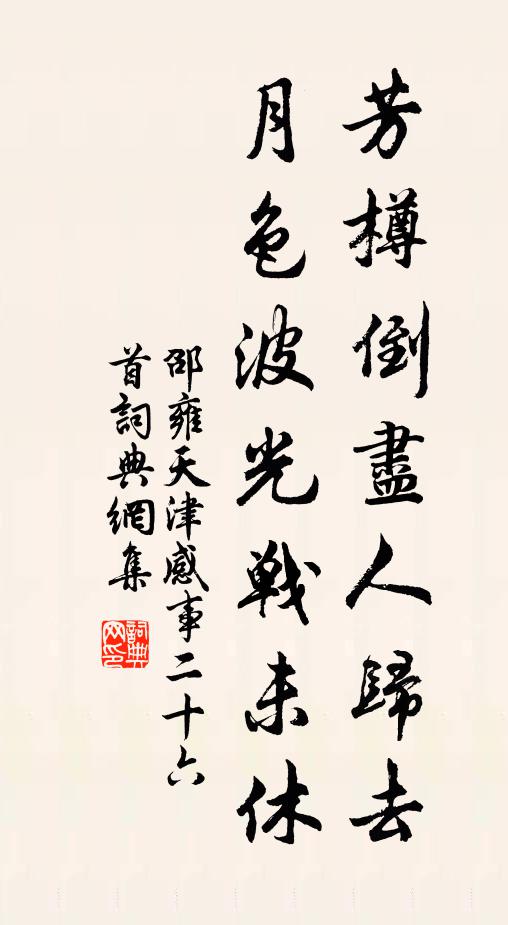 芳樽倒盡人歸去
月色波光戰未休
邵雍天津感事二十六
首詞典網集
詞典
网印